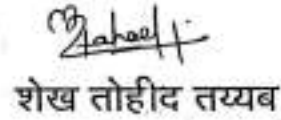 शेख तोहीद तय्यब